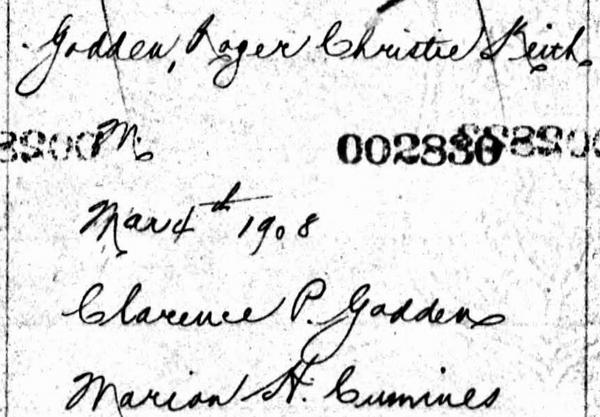 Godden, Roger Christie Keith
M.
002830
Mar 4th 1908
Clarence P. Godden
Marion H. Cumines